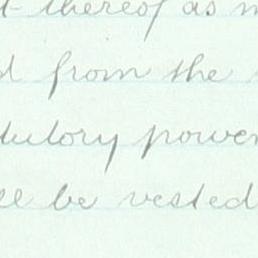 thereof as
from the
tutory power
be vested